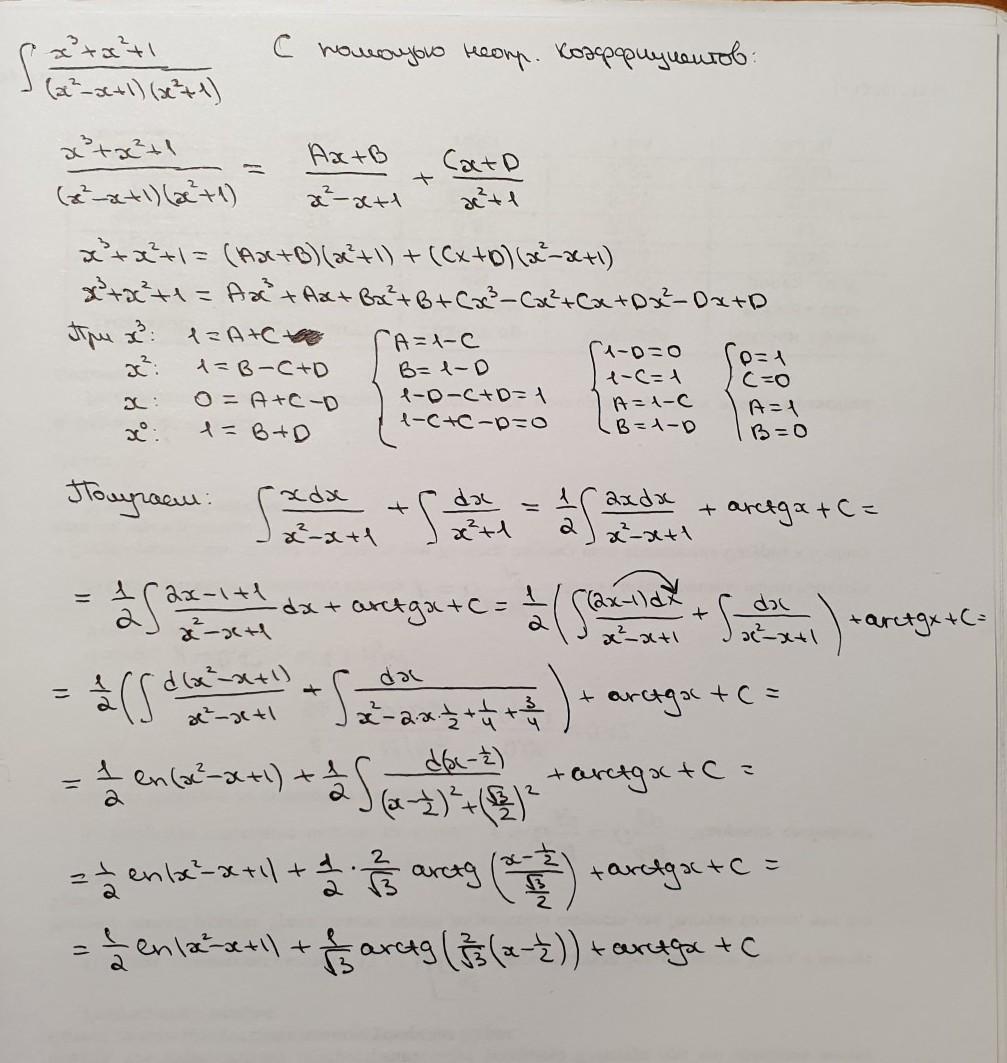 ∫ (x³+x²+1)/((x²-x+1)(x²+1)) С помощью неопр. коэффициентов:
(x³+x²+1)/((x²-x+1)(x²+1)) = (Ax+B)/(x²-x+1) + (Cx+D)/(x²+1)
x³+x²+1 = (Ax+B)(x²+1) + (Cx+D)(x²-x+1)
x³+x²+1 = Ax³+Ax+Bx²+B+Cx³-Cx²+Cx+Dx²-Dx+D
При x³: 1=A+C { A=1-C { 1-D=0 { D=1
x²: 1=B-C+D B=1-D 1-C=1 C=0
x: 0=A+C-D 1-D-C+D=1 A=1-C A=1
x⁰: 1=B+D 1-C+C-D=0 B=1-D B=0
Получаем: ∫ xdx/(x²-x+1) + ∫ dx/(x²+1) = 1/2 ∫ 2xdx/(x²-x+1) + arctgx + C =
= 1/2 ∫ (2x-1+1)/(x²-x+1) dx + arctgx + C = 1/2 (∫ (2x-1)dx/(x²-x+1) + ∫ dx/(x²-x+1)) + arctgx + C =
= 1/2 (∫ d(x²-x+1)/(x²-x+1) + ∫ dx/(x²-2·x·1/2+1/4+3/4)) + arctgx + C =
= 1/2 ln(x²-x+1) + 1/2 ∫ d(x-1/2)/((x-1/2)²+(√3/2)²) + arctgx + C =
= 1/2 ln|x²-x+1| + 1/2 · 2/√3 arctg((x-1/2)/(√3/2)) + arctgx + C =
= 1/2 ln|x²-x+1| + 1/√3 arctg(2/√3(x-1/2)) + arctgx + C